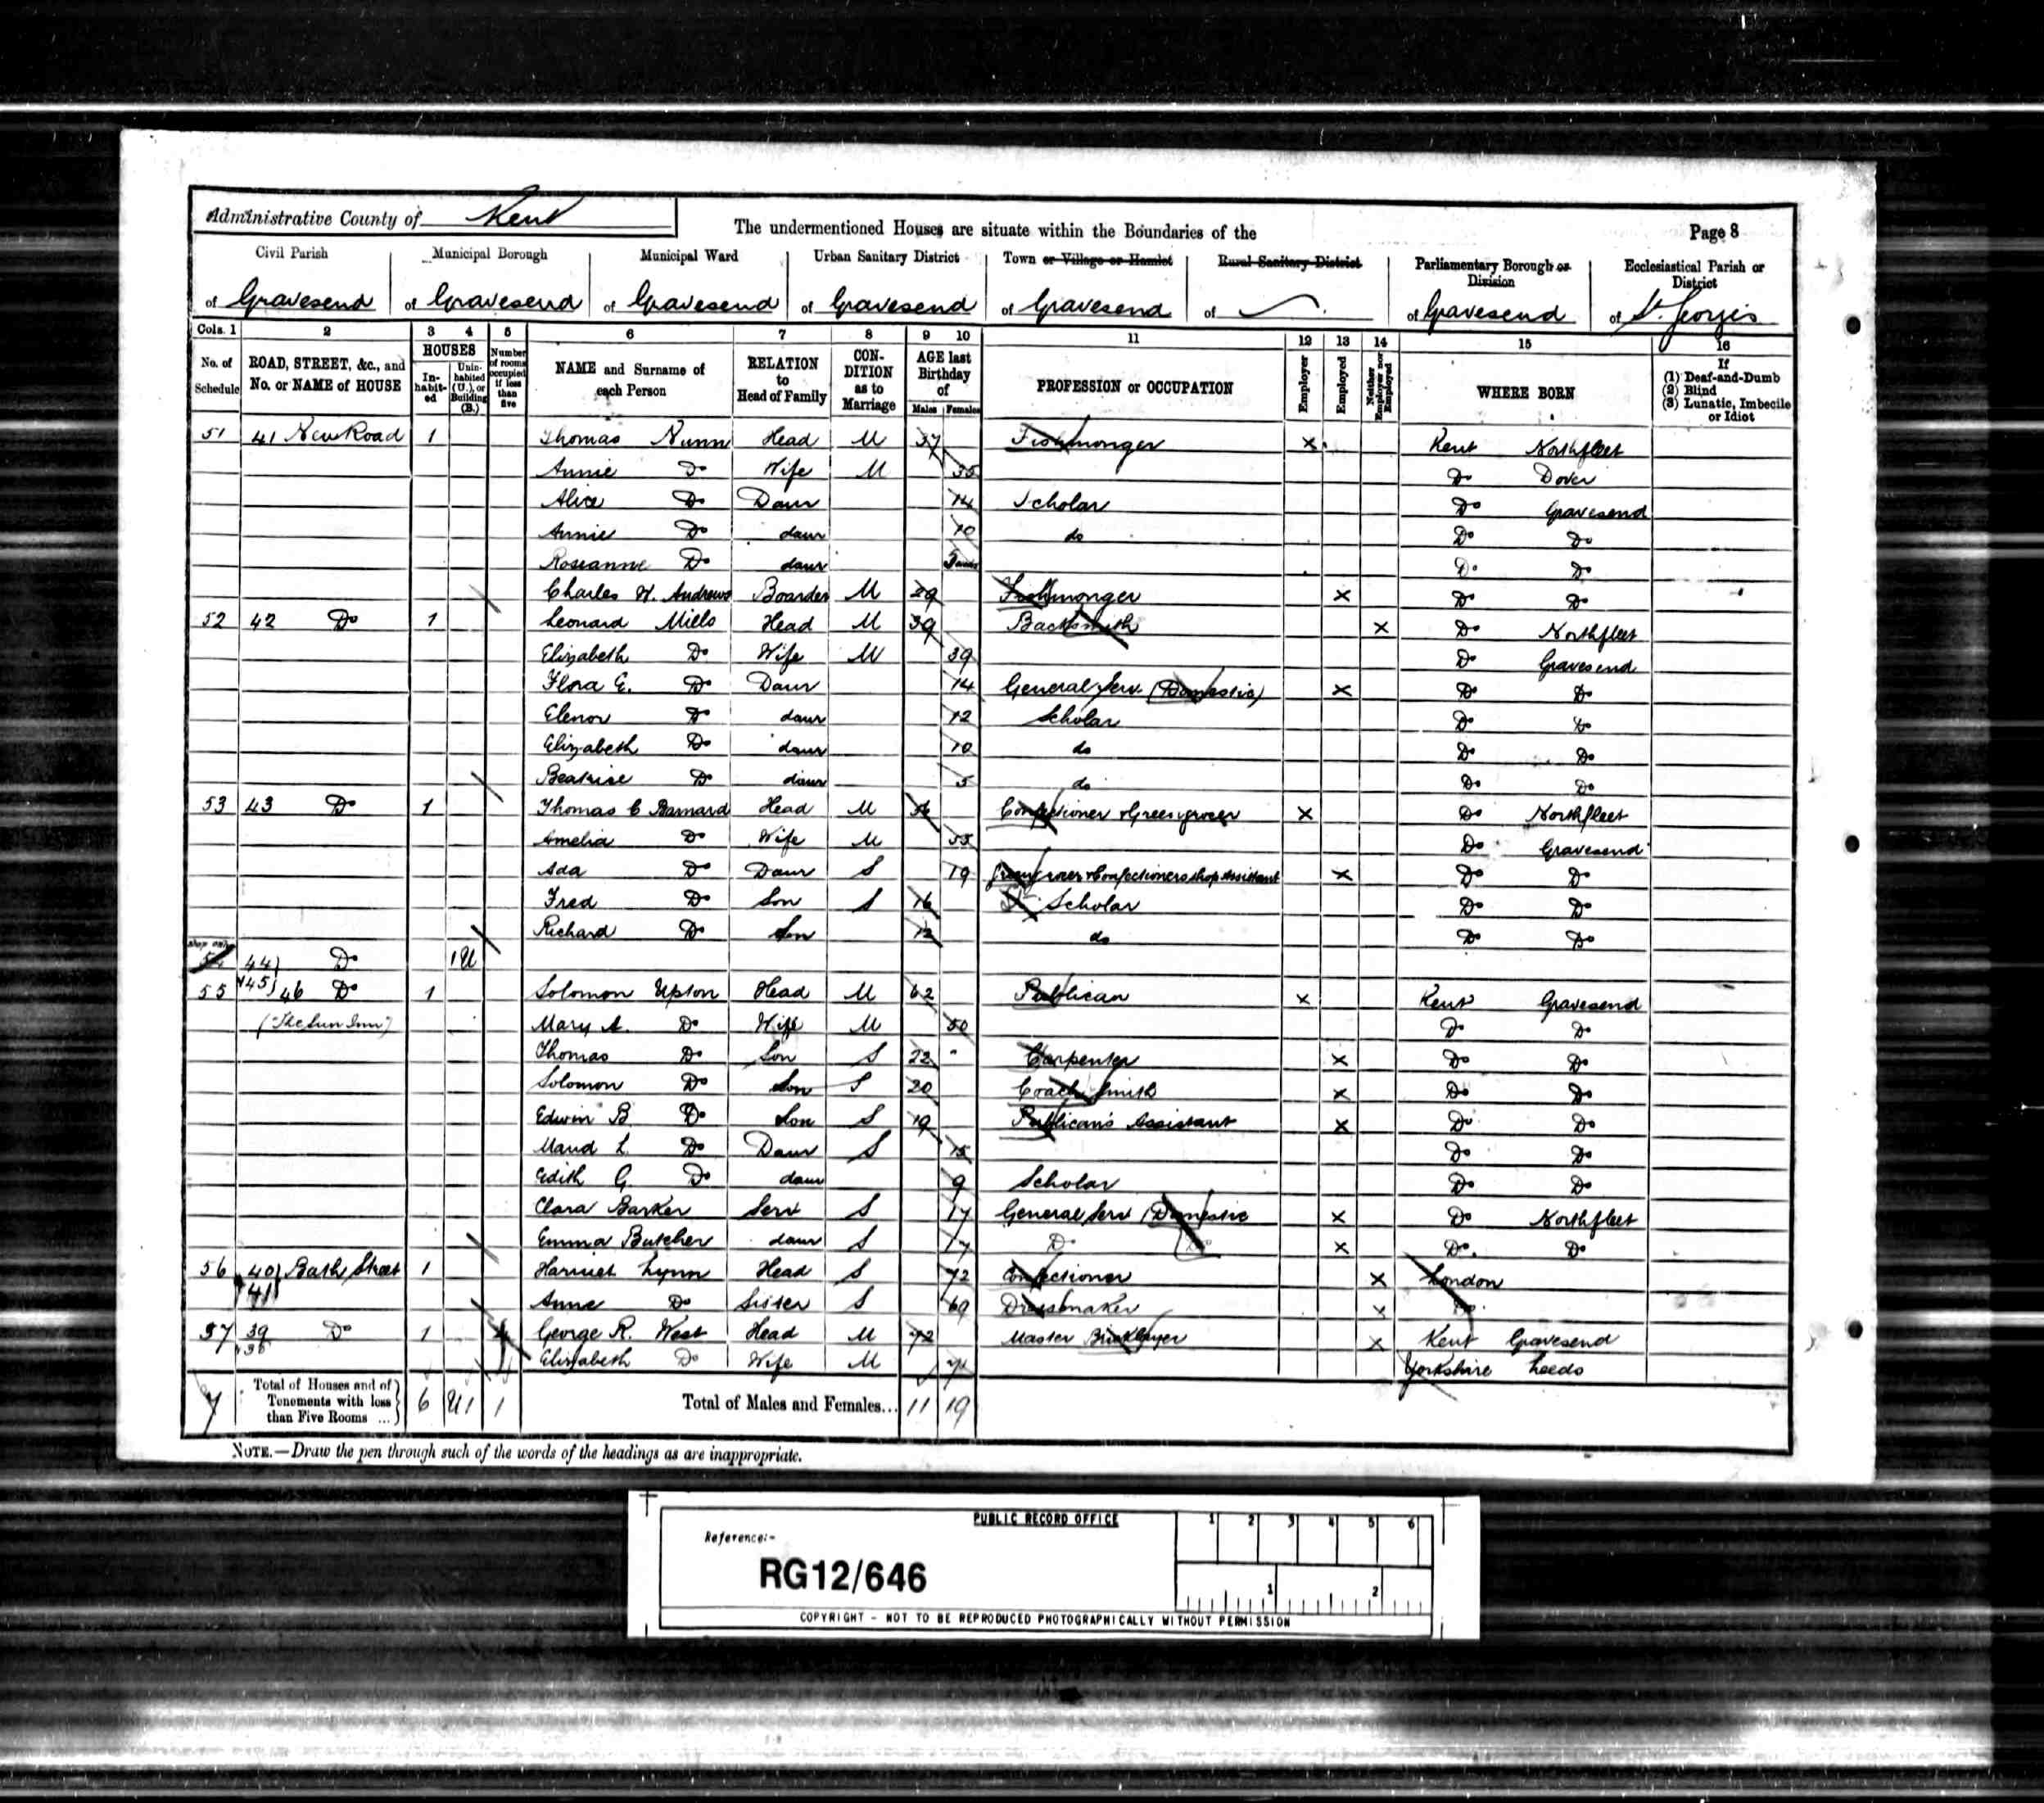 Administrative County of Kent
The undermentioned Houses are situate within the Boundaries of the
Page 8
Civil Parish Municipal Borough Municipal Ward Urban Sanitary District Town or Village or Hamlet Rural Sanitary District Parliamentary Borough or Division Ecclesiastical Parish or District
of Gravesend of Gravesend of Gravesend of Gravesend of Gravesend of of Gravesend of St. Georges
Cols. 1 2 3 4 5 6 7 8 9 10 11 12 13 14 15 16
No. of Schedule ROAD, STREET, &c., and No. or NAME of HOUSE HOUSES Inhabited Uninhabited (U.), or Building (B.) Number of rooms occupied if less than five NAME and Surname of each Person RELATION to Head of Family CONDITION as to Marriage AGE last Birthday of Males Females PROFESSION or OCCUPATION Employer Employed Neither Employer nor Employed WHERE BORN If (1) Deaf-and-Dumb (2) Blind (3) Lunatic, Imbecile or Idiot
51 41 New Road 1 Thomas Nunn Head M 37 Fishmonger x Kent Northfleet
Annie Do Wife M 35 Do Dover
Alice Do Daur 14 Scholar Do Gravesend
Annie Do daur 10 do Do Do
Roseanne Do daur 5 Do Do
Charles W. Andrews Boarder M 29 Fishmonger x Do Do
52 42 Do 1 Leonard Head M 39 x Do Northfleet
Elizabeth Do Wife M 39 Do Gravesend
Flora E. Do Daur 14 General Serv. (Domestic) x Do Do
Elenor Do daur 12 Scholar Do Do
Elizabeth Do daur 10 do Do Do
Beatrice Do daur 5 do Do Do
53 43 Do 1 Thomas C Barnard Head M 56 Confectioner & Greengrocer x Do Northfleet
Amelia Do Wife M 55 Do Gravesend
Ada Do Daur S 19 Greengrocer & Confectioners shop Assistant x Do Do
Fred Do Son S 16 Scholar Do Do
Richard Do Son 12 do Do Do
shop only
54 44 Do 1U
55 45 46 Do 1 Solomon Upton Head M 62 Publican x Kent Gravesend
("The Sun Inn") Mary A. Do Wife M 50 Do Do
Thomas Do Son S 22 Carpenter x Do Do
Solomon Do Son S 20 Coach Smith x Do Do
Edwin B Do Son S 19 Publican's Assistant x Do Do
Maud L. Do Daur S 15 Do Do
Edith G. Do daur 9 Scholar Do Do
Clara Barker Serv S 17 General Serv (Domestic x Do Northfleet
Emma Butcher daur S 17 Do Do x Do Do
56 40 Bath Street 1 Harriet Lynn Head S 72 Confectioner x London
41 Anne Do Sister S 69 Dressmaker x Do
57 39 Do 1 4 George R. West Head M 72 Master Bricklayer x Kent Gravesend
38 Elizabeth Do Wife M Yorkshire Leeds
7 Total of Houses and of Tenements with less than Five Rooms ... 6 U1 1 Total of Males and Females... 11 19
NOTE.—Draw the pen through such of the words of the headings as are inappropriate.
PUBLIC RECORD OFFICE 1 2 3 4 5 6
Reference:-
RG12/646
1 2
COPYRIGHT - NOT TO BE REPRODUCED PHOTOGRAPHICALLY WITHOUT PERMISSION